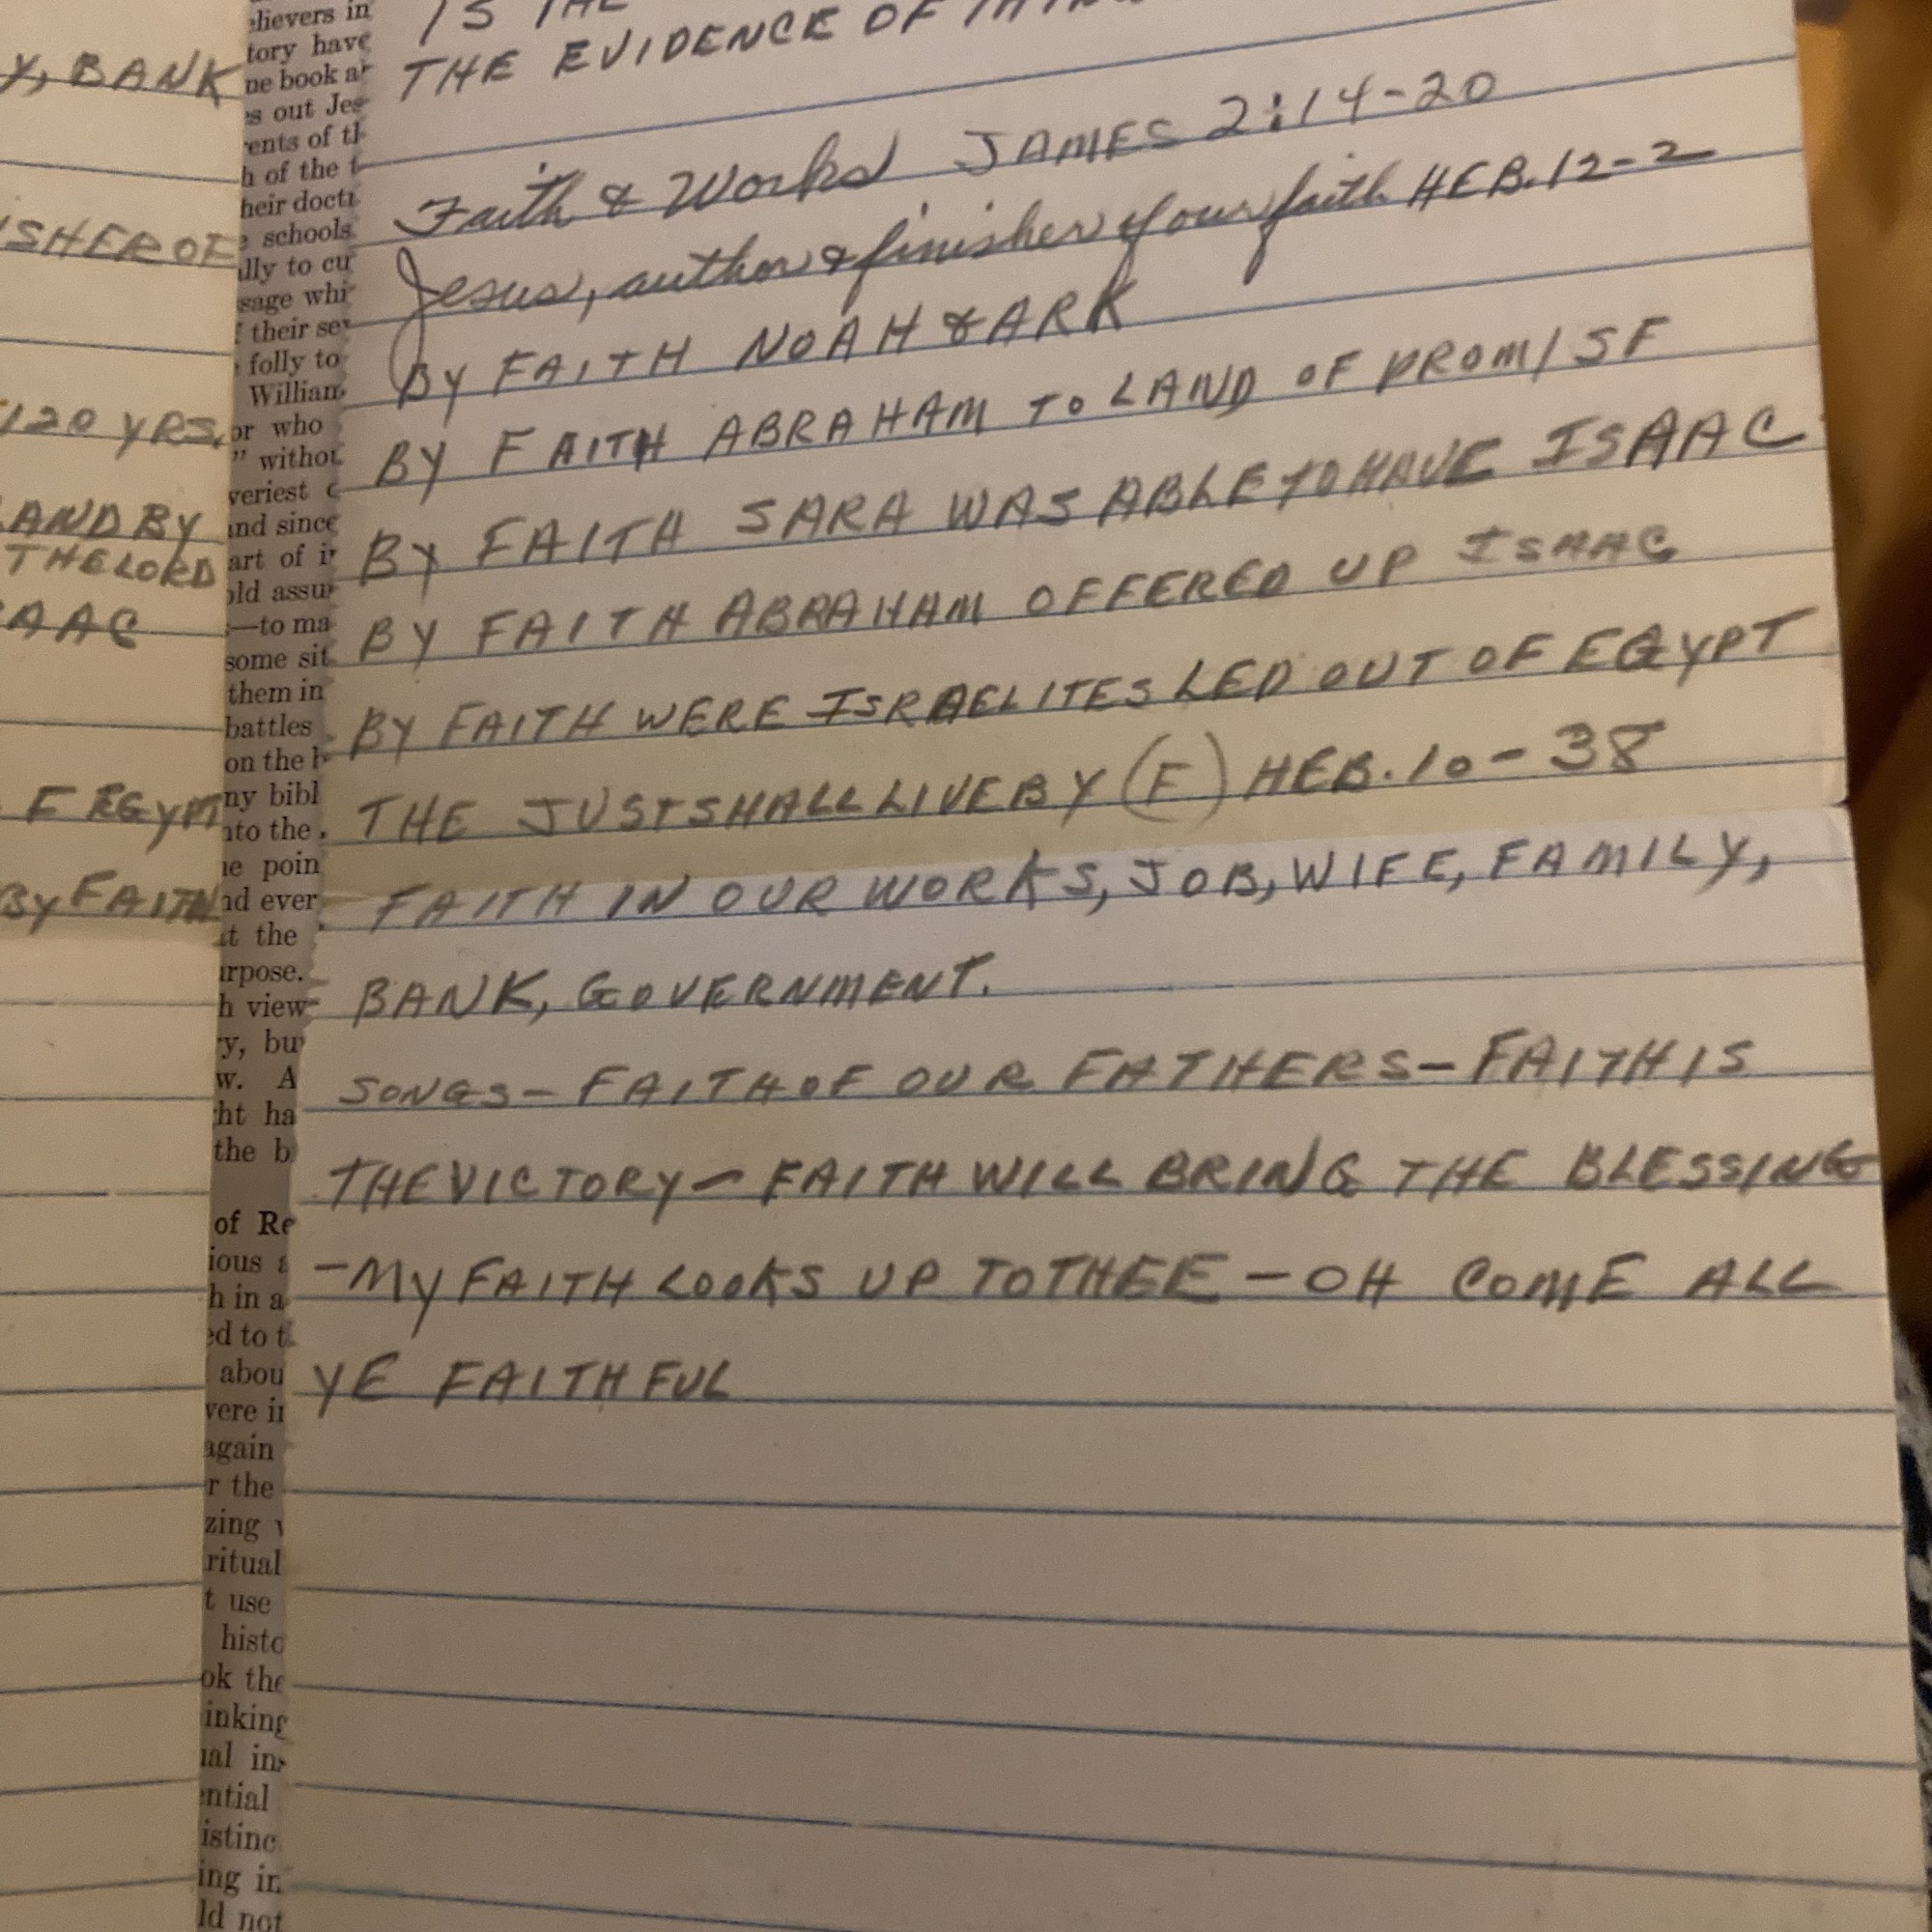 Y, BANK
SHER OF
120 YRS,
LAND BY
THE LORD
AAC
F EGYPT
BY FAITH
elievers in
tory have
ne book
s out
ents of
h of the
heir
schools
lly to
sage
their
folly to
William
or who
"
veriest
and since
art of
old
—to
some
them in
battles
on the
ny
nto the
poin
ever
at the
urpose.
h view
y,
w. A
ht
the
of
ious
h in a
ed to
were
again
r the
zing
ritual
t use
ok the
inking
ential
ing in
ld not
IS THE
THE EVIDENCE OF
Faith & Works JAMES 2:14-20
Jesus, author & finisher of our faith HEB. 12-2
BY FAITH NOAH & ARK
BY FAITH ABRAHAM TO LAND OF PROMISE
BY FAITH SARA WAS ABLE TO HAVE ISAAC
BY FAITH ABRAHAM OFFERED UP ISAAC
BY FAITH WERE ISRAELITES LED OUT OF EGYPT
THE JUST SHALL LIVE BY (F) HEB. 10-38
FAITH IN OUR WORKS, JOB, WIFE, FAMILY,
BANK, GOVERNMENT.
SONGS- FAITH OF OUR FATHERS- FAITH IS
THE VICTORY- FAITH WILL BRING THE BLESSING
-MY FAITH LOOKS UP TO THEE - OH COME ALL
YE FAITHFUL